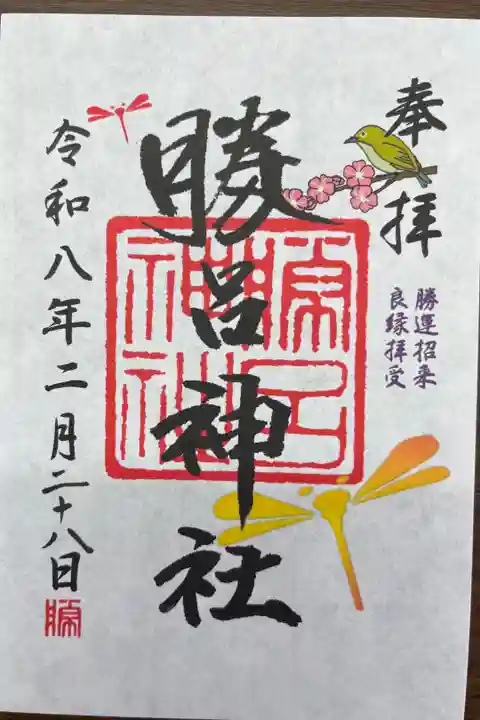 奉拝
勝運招来
良縁拝受
勝呂神社
勝呂
神社
令和八年二月二十八日
勝